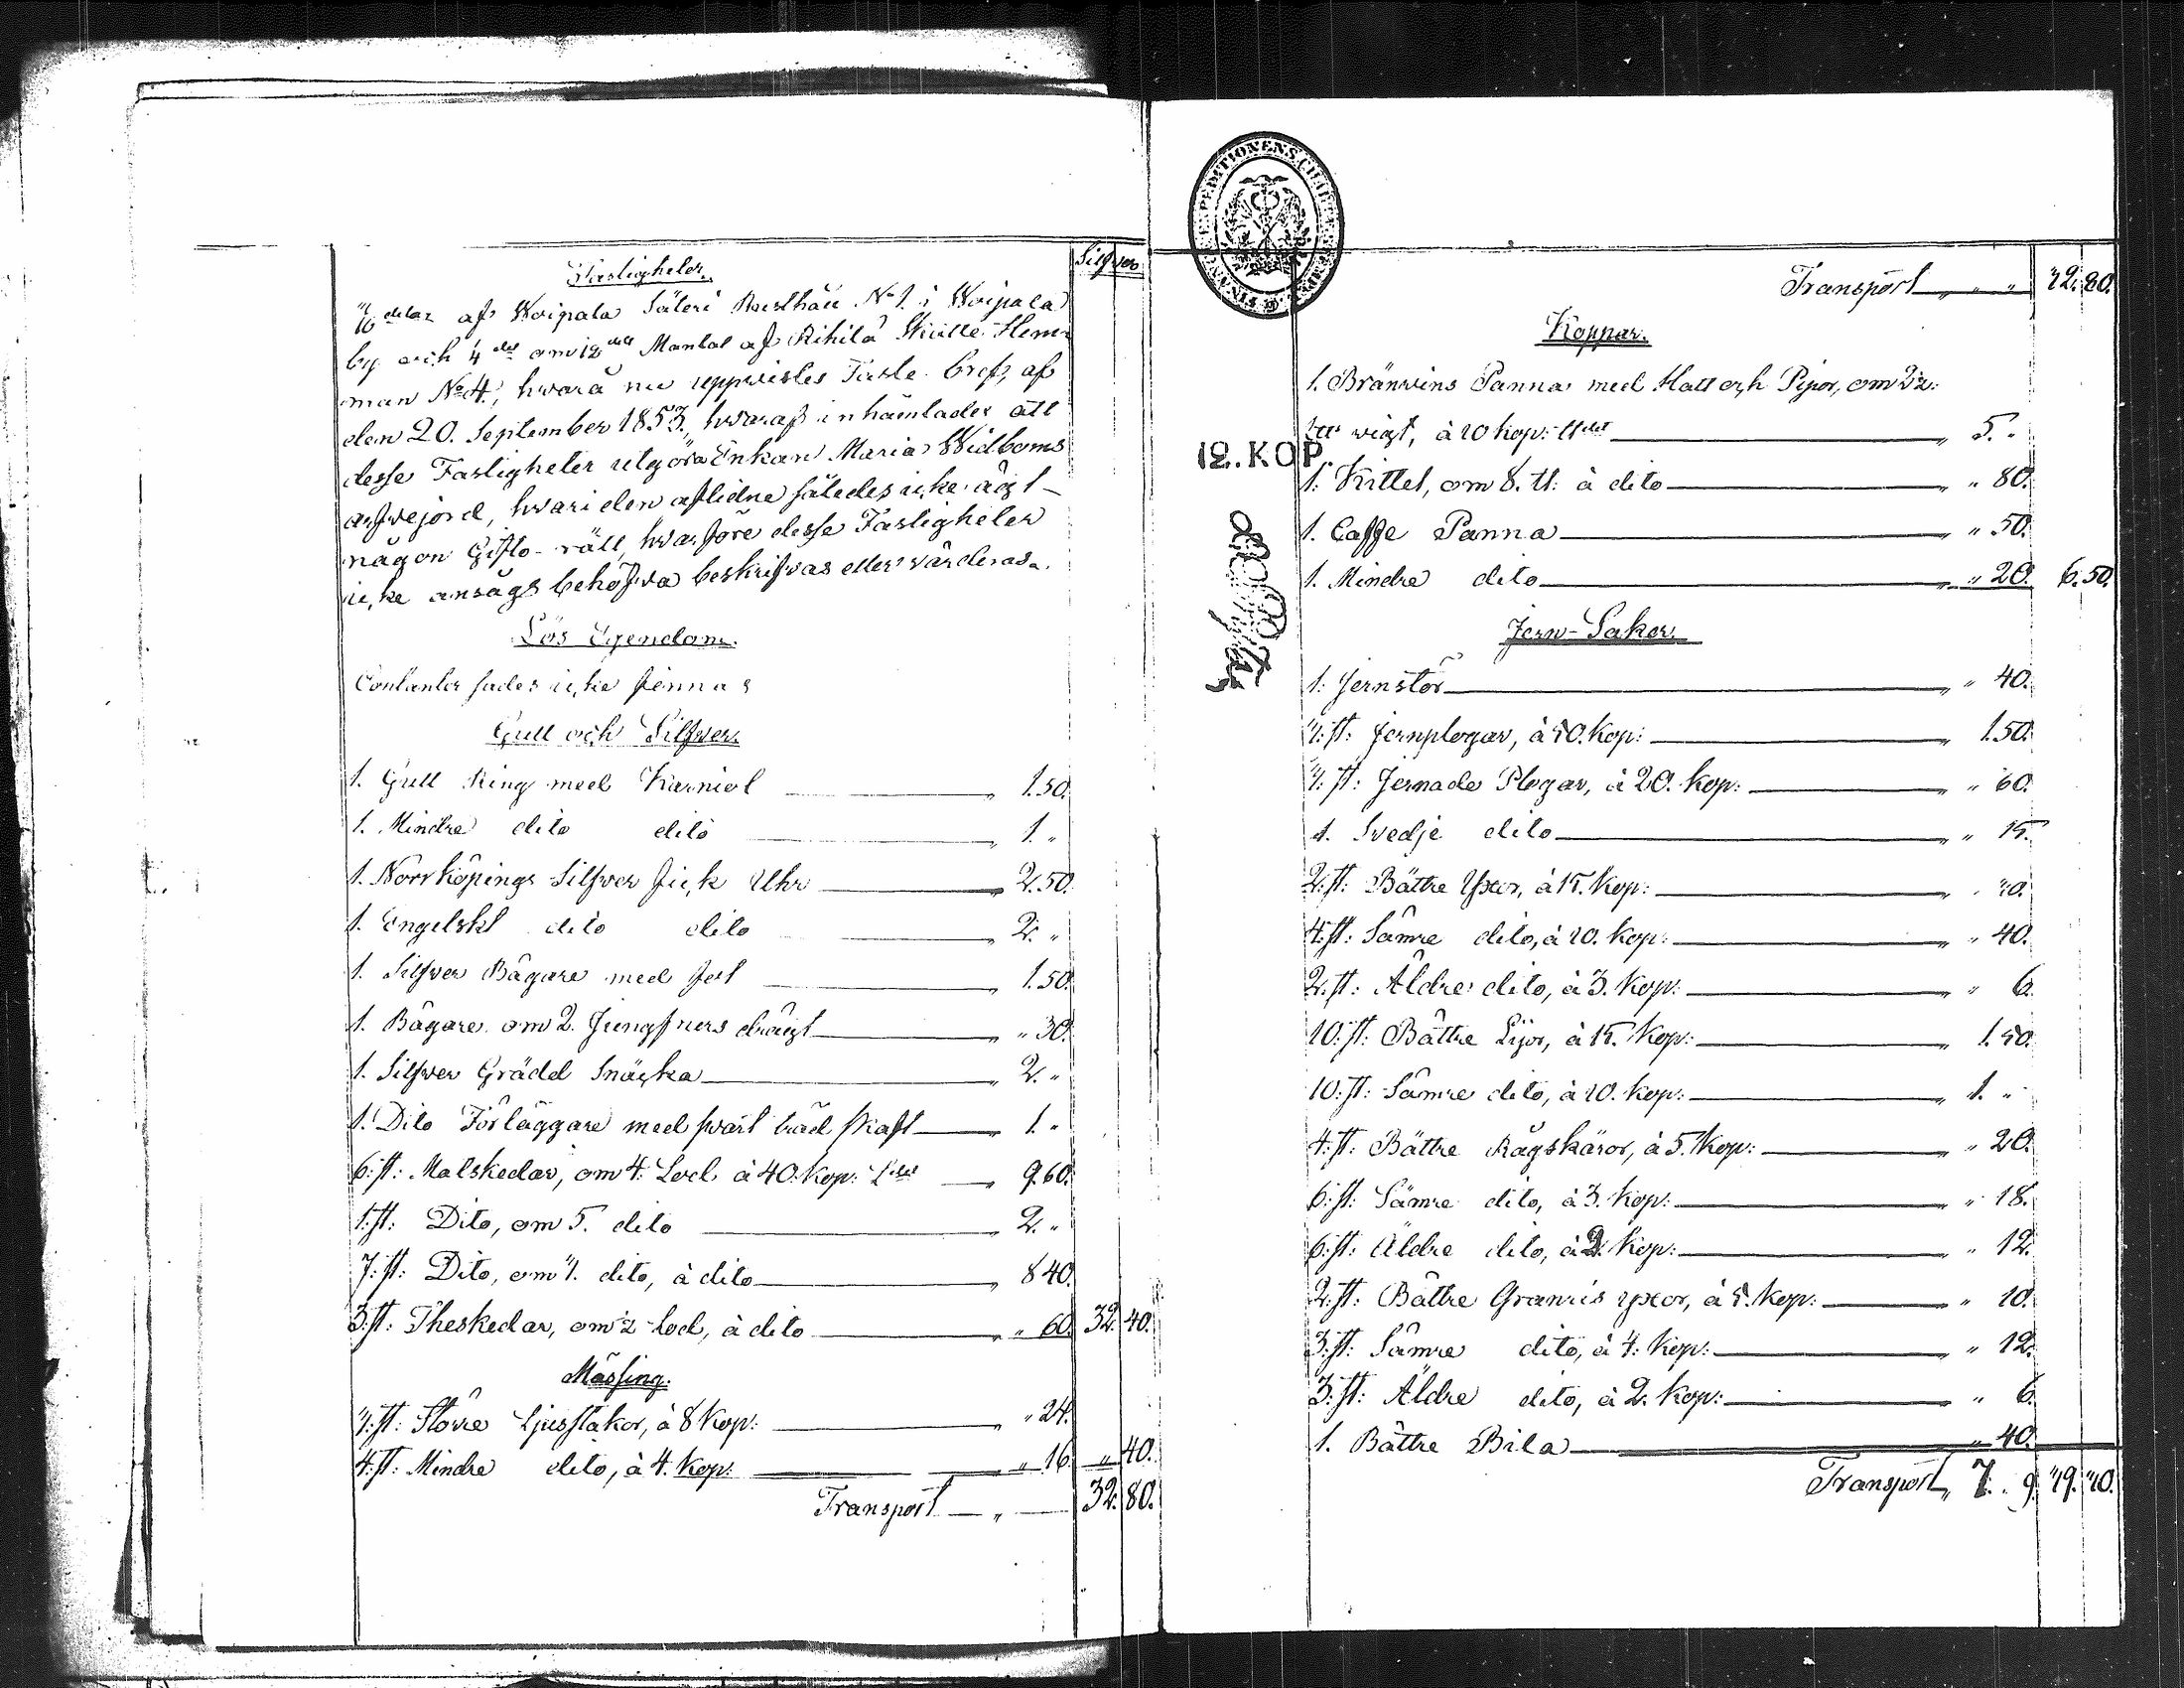 Silfver
Fastigheter.
3/16 delar af Woipala Säteri Rusthåll No 1. i Woipala
by och 4 del om 12 dels Mantal af Rihilä Skatte Hem-
man No 4., hwarå nu uppwistes Faste bref, af
den 20. September 1853., hwaraf inhämtades att
desse Fastigheter utgöra Enkan Maria Widboms
arfwejord, hwari den aflidne således icke ägt
någon Gifto-rätt, hwarföre desse Fastigheter
icke ansågs behöfva beskrifvas eller värderas.
Lös Egendom.
Contanter sades icke finnas
Gull och Silfwer.
1. Gull Ring med Karniol „ 1.50.
1. Mindre dito dito „ 1. „
1. Norrköpings Silfwer fick Uhr „ 2.50.
1. Engelskt dito dito „ 2. „
1. Silfwer Bägare med fot „ 1.50.
1. Bägare om 2. Jungfrurs drägt „ „ 30.
1. Silfwer Grädd Snäcka „ 2. „
1. Dito Förläggare med swart träd skaft „ 1. „
6. st: Matskedar, om 4. Lod à 40. Kop: L det „ 9.60.
1. st: Dito, om 5. dito „ 2. „
7. st: Dito, om 3. dito, à dito „ 8 40.
3. st: Theskedar, om ½ Lod, à dito „ „ 60. 32. 40.
Mässing.
3. st: Större Ljusstakar, à 8 Kop: „ 24.
4. st: Mindre dito, à 4. Kop: „ 16. „ 40.
Transport „ 32. 80.
FINANCE EXPEDITIONENS CHARTÆ
Transport „ „ 32. 80.
Koppar.
1. Bränwins Panna med Hatt och Pipor, om 2½
wigt, à 20 kop: „ 5. „
12. KOP.
1. Kittel, om 8. ℔: à dito „ „ 80.
1. Caffe Panna „ 50.
1. Mindre dito „ „ 20. 6. 50.
Jern-Saker.
1. Jernstör „ „ 40.
3. st: Jernplogar, à 50. Kop: „ 1.50.
3. st: Jernade Plogar, à 20. kop: „ „ 60.
1. Svedje dito „ „ 15.
2. st: Bättre Yxor, à 15. Kop: „ „ 30.
4. st: Sämre dito, à 10. kop: „ „ 40.
2. st: Äldre dito, à 3. Kop: „ „ 6.
10. st: Bättre Lijor, à 15. Kop: „ 1. 50.
10. st: Sämre dito, à 10. Kop: „ 1. „
4. st: Bättre Rågskäror, à 5. Kop: „ „ 20.
6. st: Sämre dito, à 3. Kop: „ „ 18.
6. st: Äldre dito, à 2. Kop: „ „ 12.
2. st: Bättre Granris yxor, à 5. Kop: „ „ 10.
3. st: Sämre dito, à 4. Kop: „ „ 12.
3. st: Äldre dito, à 2. Kop: „ „ 6.
1. Bättre Bila „ 40.
Transport „ 7. „ 9. 39. 30.